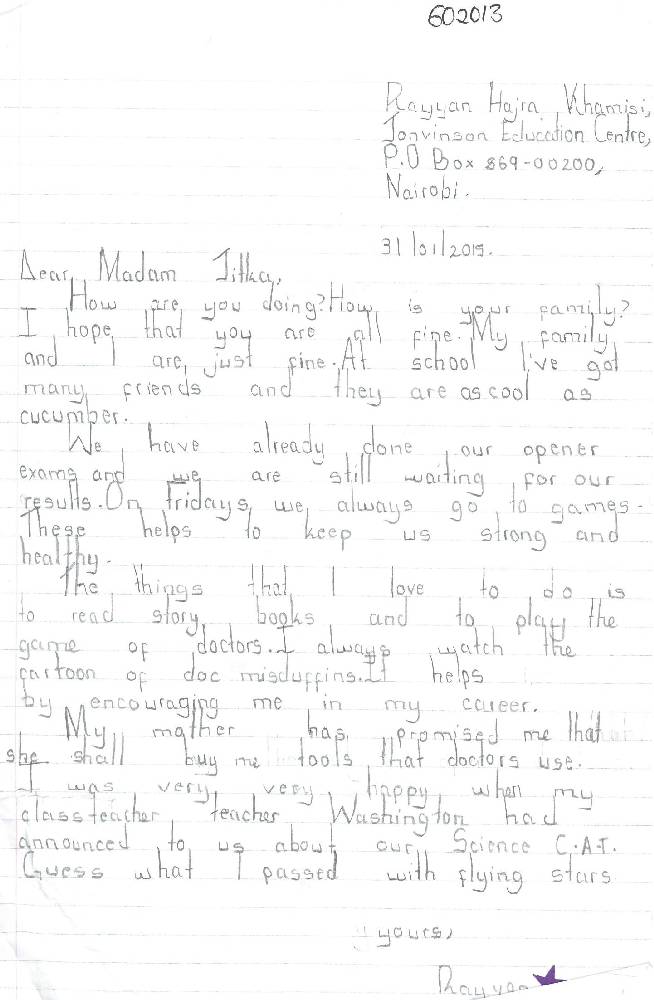 602013
Rayyan Hajra Khamisi,
Jonvinson Education Centre,
P.O Box 869-00200,
Nairobi.
31/01/2019.
Dear Madam Jitka,
How are you doing? How is your family?
I hope that you are all fine. My family
and I are just fine. At school I've got
many friends and they are as cool as
cucumber.
We have already done our opener
exams and we are still waiting for our
results. On Fridays, we always go to games.
These helps to keep us strong and
healthy.
The things that I love to do is
to read story books and to play the
game of doctors. I always watch the
cartoon of doc misduffins. It helps
by encouraging me in my career.
My mother has promised me that
she shall buy me tools that doctors use.
I was very, very happy when my
classteacher, teacher Washington had
announced to us about our Science C.A.T.
Guess what I passed with flying stars
yours,
Rayyan